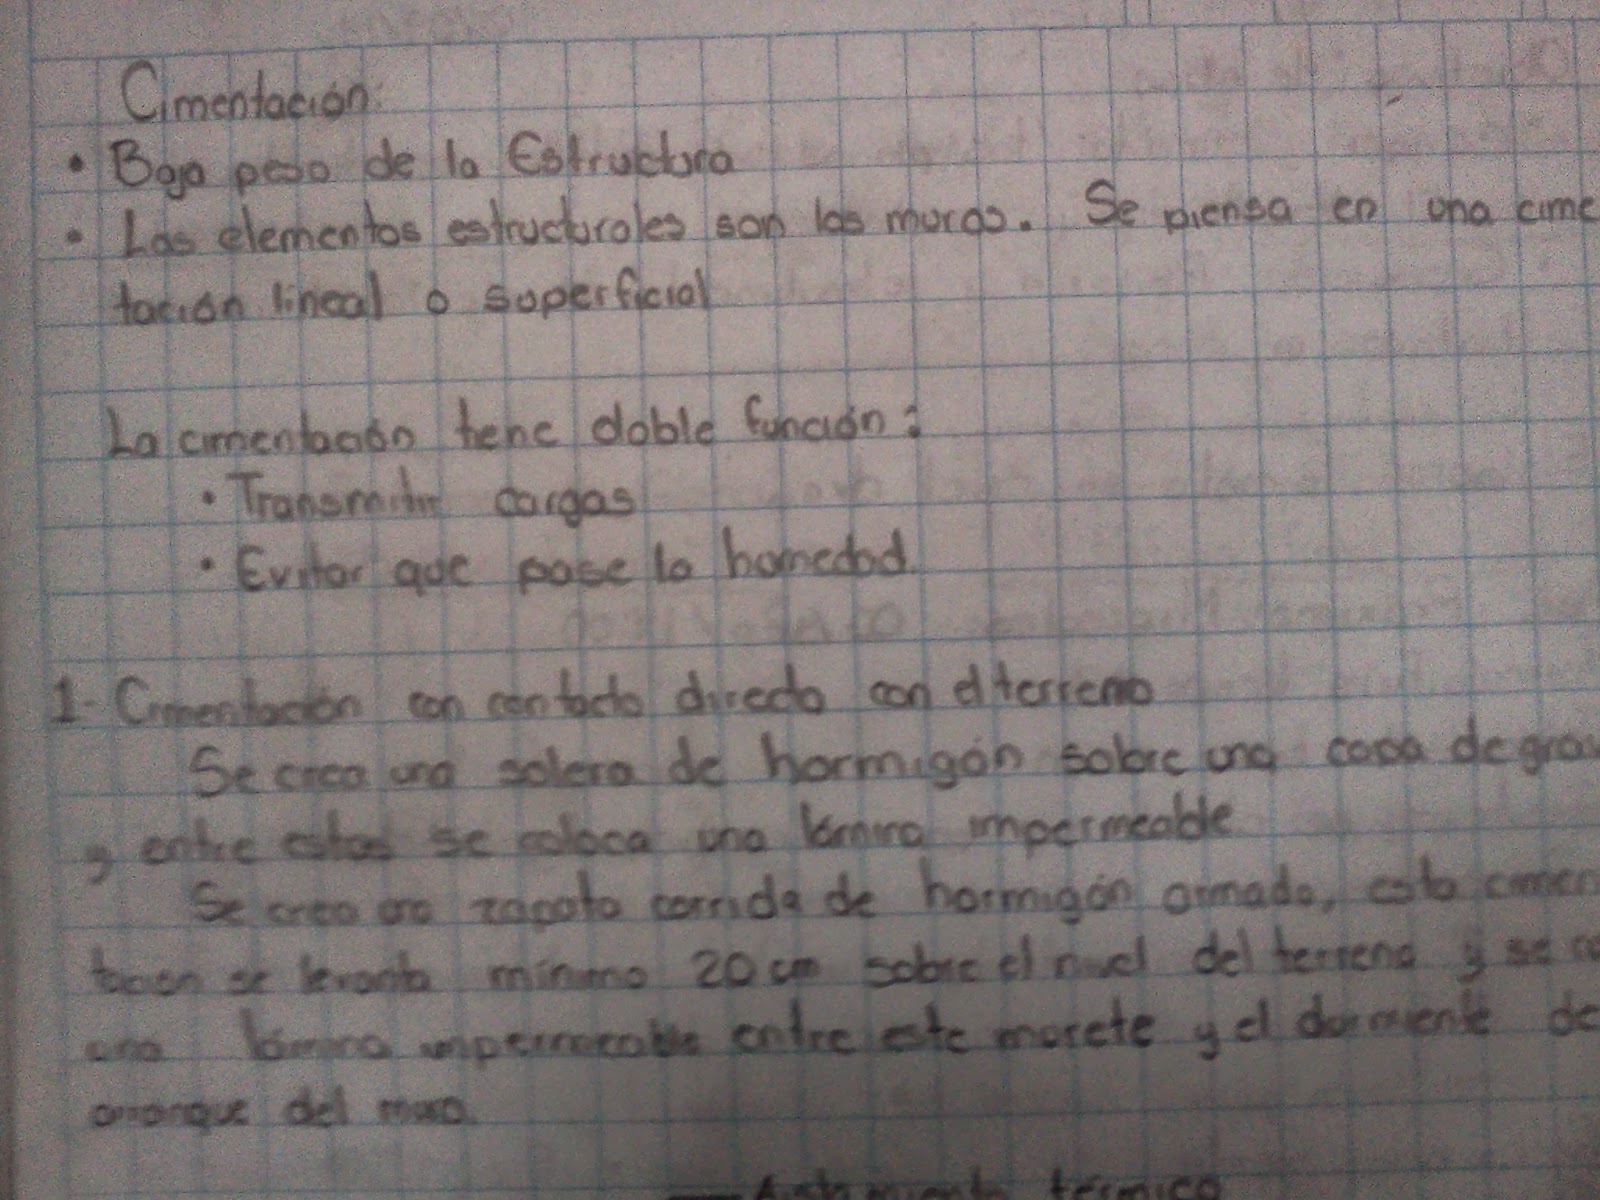 Cimentación:
• Bajo peso de la Estructura
• Los elementos estructurales son los muros. Se piensa en una cime
tación lineal o superficial
La cimentación tiene doble función:
• Transmitir cargas
• Evitar que pase la humedad.
1- Cimentación con contacto directo con el terreno
Se crea una solera de hormigón sobre una capa de grav
y entre estas se coloca una lámina impermeable
Se crea una zapata corrida de hormigón armado, esta cimen
tacion se levanta mínimo 20 cm sobre el nivel del terreno y se co
una lámina impermeable entre este murete y el durmiente de
arranque del muro.
Aislamiento térmico